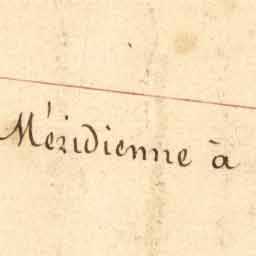 Méridienne à